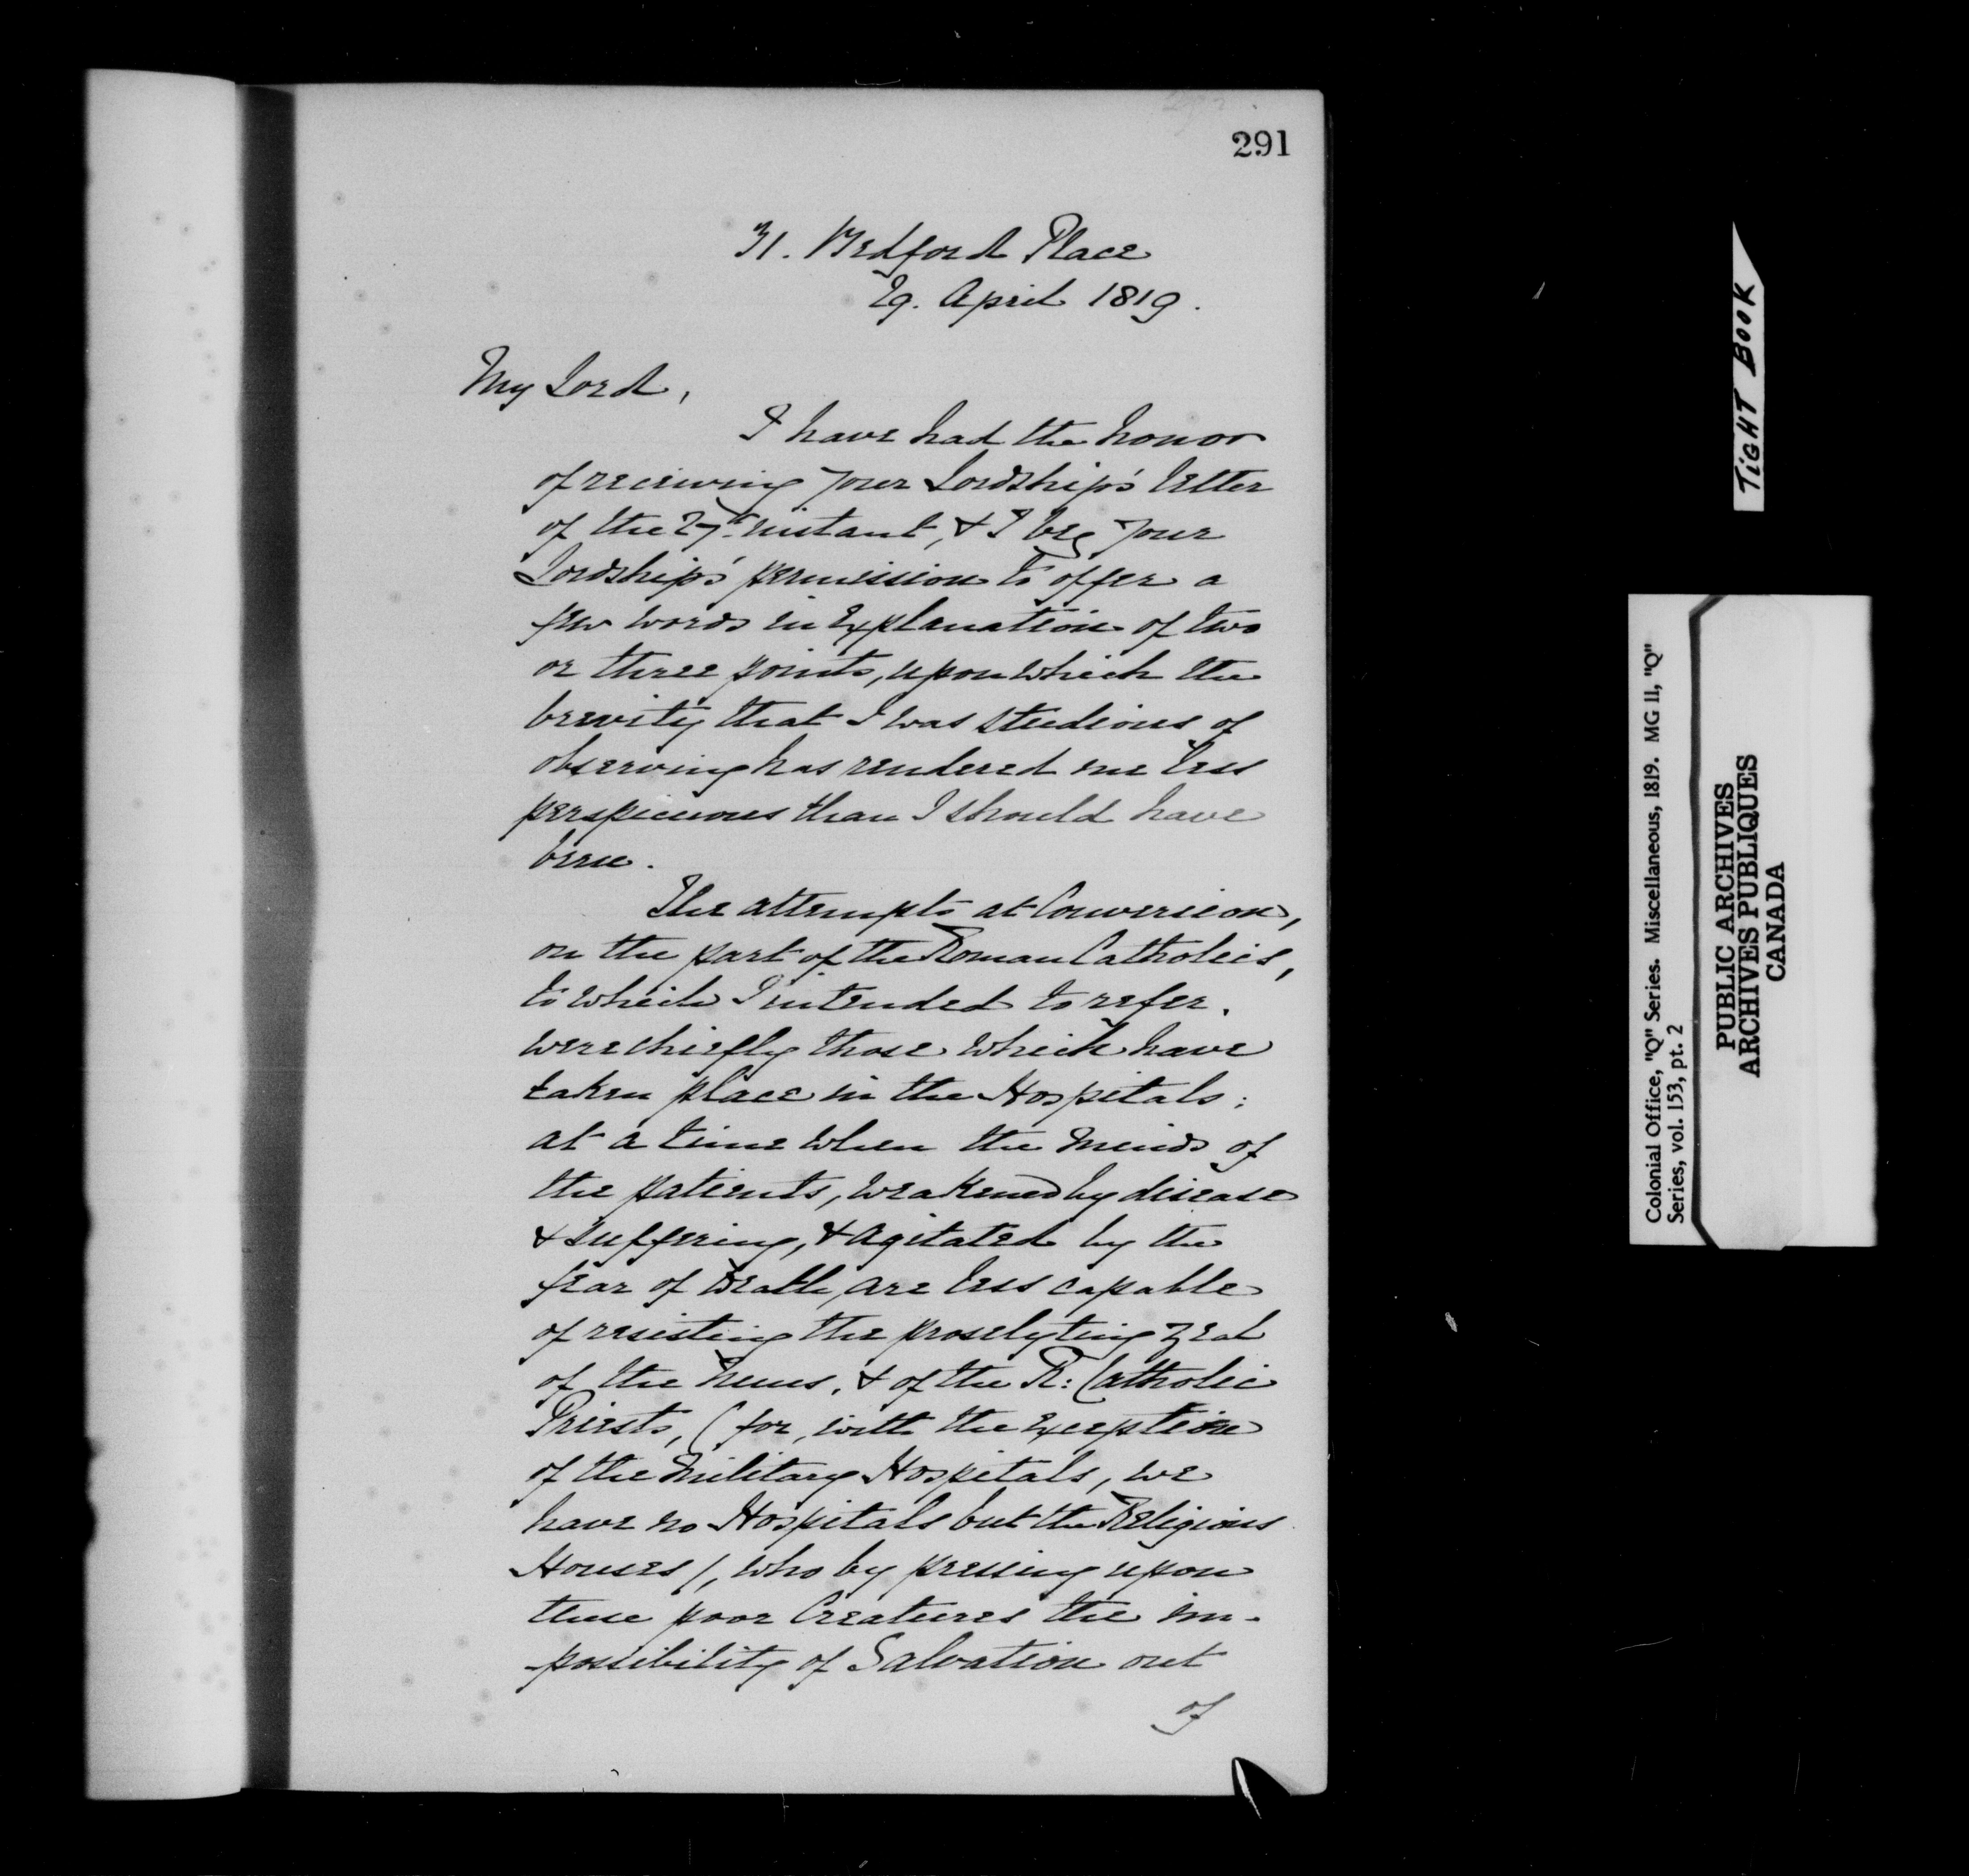 291
31. Bedford Place
29. April 1819.
My Lord,
I have had the honor
of receiving your Lordship's letter
of the 27th instant, & I beg your
Lordship's permission to offer a
few words in Explanation of two
or three points, upon which the
brevity that I was studious of
observing has rendered me less
perspicuous than I should have
been.
The attempts at Conversion,
on the part of the Roman Catholics,
to which I intended to refer.
were chiefly those which have
taken place in the Hospitals:
at a time when the minds of
the patients, weakened by disease
& suffering, & agitated by the
fear of Death, are less capable
of resisting the proselyting zeal
of the Nuns, & of the R: Catholic
Priests, (for, with the Exception
of the Military Hospitals, we
have no Hospitals but the Religious
Houses), who by pressing upon
these poor Creatures the im-
-possibility of Salvation out
of
TIGHT BOOK
Colonial Office, "Q" Series. Miscellaneous, 1819. MG 11, "Q"
Series, vol. 153, pt. 2
PUBLIC ARCHIVES
ARCHIVES PUBLIQUES
CANADA